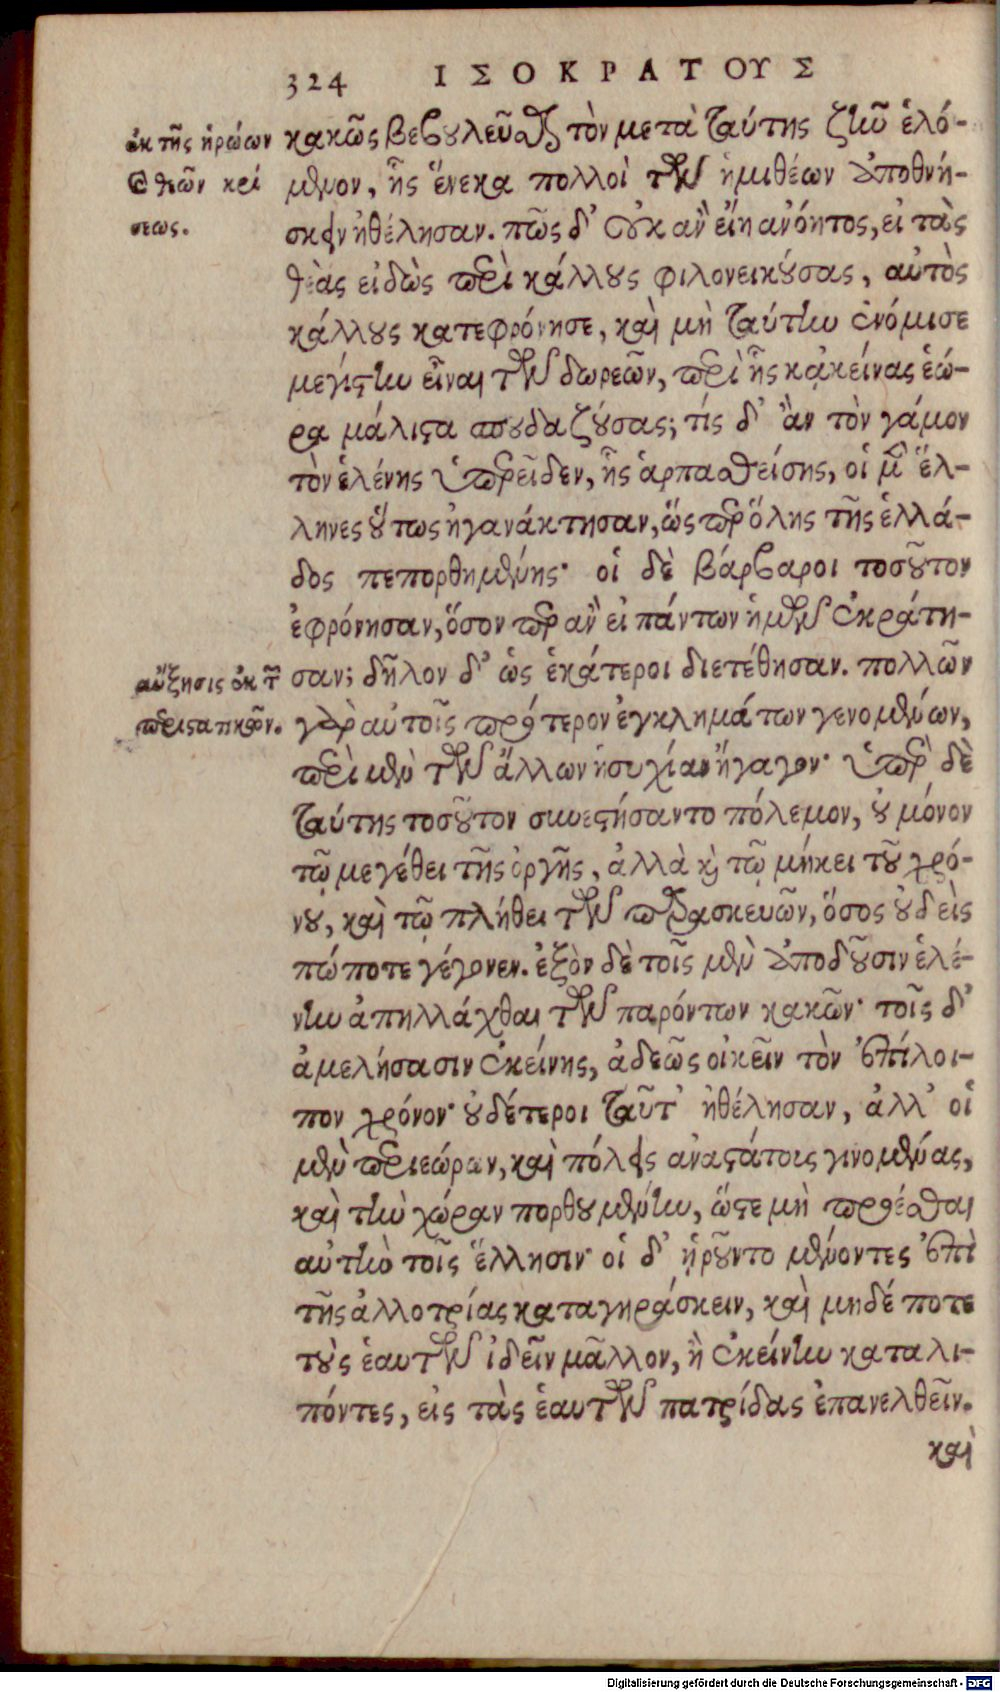 324 ΙΣΟΚΡΑΤΟΥΣ
κακῶς βεβουλεῦσθαι τὸν μετὰ ταύτης ζῆν ἑλό-
μενον, ἧς ἕνεκα πολλοὶ τῶν ἡμιθέων ἀποθνή-
σκειν ἠθέλησαν. πῶς δ' οὐκ ἂν εἴη ἀνόητος, εἰ τὰς
θεὰς εἰδὼς περὶ κάλλους φιλονεικούσας, αὐτὸς
κάλλους κατεφρόνησε, καὶ μὴ ταύτην ἐνόμισε
μεγίστην εἶναι τῶν δωρεῶν, περὶ ἧς κἀκείνας ἑώ-
ρα μάλιστα σπουδαζούσας; τίς δ' ἂν τὸν γάμον
τὸν ἑλένης ὑπερεῖδεν, ἧς ἁρπασθείσης, οἱ μὲν ἕλ-
ληνες οὕτως ἠγανάκτησαν, ὥσπερ ὅλης τῆς ἑλλά-
δος πεπορθημένης· οἱ δὲ βάρβαροι τοσοῦτον
ἐφρόνησαν, ὅσον περ ἂν εἰ πάντων ἡμῶν ἐκράτη-
σαν; δῆλον δ' ὡς ἑκάτεροι διετέθησαν. πολλῶν
γὰρ αὐτοῖς πρότερον ἐγκλημάτων γενομένων,
περὶ μὲν τῶν ἄλλων ἡσυχίαν ἤγαγον· ὑπὲρ δὲ
ταύτης τοσοῦτον συνεστήσαντο πόλεμον, οὐ μόνον
τῷ μεγέθει τῆς ὀργῆς, ἀλλὰ καὶ τῷ μήκει τοῦ χρό-
νου, καὶ τῷ πλήθει τῶν παρασκευῶν, ὅσος οὐδεὶς
πώποτε γέγονεν. ἐξὸν δὲ τοῖς μὲν ἀποδοῦσιν ἑλέ-
νην ἀπηλλάχθαι τῶν παρόντων κακῶν· τοῖς δ'
ἀμελήσασιν ἐκείνης, ἀδεῶς οἰκεῖν τὸν ἐπίλοι-
πον χρόνον· οὐδέτεροι ταῦτ' ἠθέλησαν, ἀλλ' οἱ
μὲν περιεώρων, καὶ πόλεις ἀναστάτοις γινομένας,
καὶ τὴν χώραν πορθουμένην, ὥστε μὴ προέσθαι
αὐτὴν τοῖς ἕλλησιν· οἱ δ' ᾑροῦντο μένοντες ἐπὶ
τῆς ἀλλοτρίας καταγηράσκειν, καὶ μηδέ ποτε
τοὺς ἑαυτῶν ἰδεῖν μᾶλλον, ἢ ἐκείνην καταλι-
πόντες, εἰς τὰς ἑαυτῶν πατρίδας ἐπανελθεῖν.
καὶ
ἐκ τῆς ἡρώων
καὶ θεῶν κρί
σεως.
αὔξησις ἐκ τῶν
περιστατικῶν.
Digitalisierung gefördert durch die Deutsche Forschungsgemeinschaft - DFG